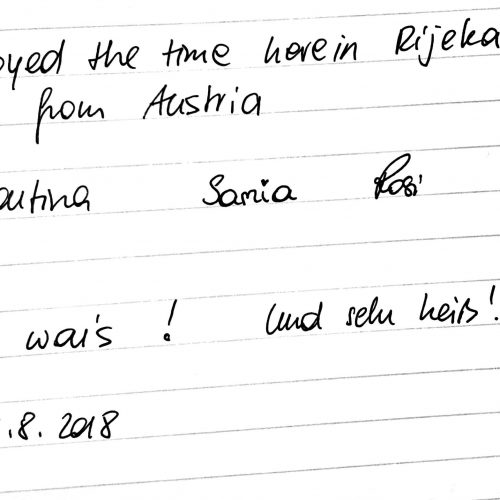 oyed the time here in Rijeka
from Austria
Samia Rosi
wars ! Und sehr heiß!
.8. 2018